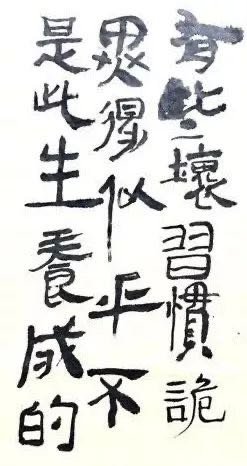 有些壞習慣詭
異得似乎不
是此生養成的